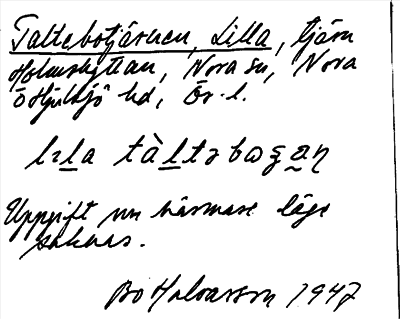 Taltebotjärnen, Lilla, tjärn
Holmshyttan, Nora sn, Nora
o Hjulsjö hd, Ör. l.
lɩla tàltəboʂan
Uppgift om närmare läge
saknas.
Bo Halvarsson 1947